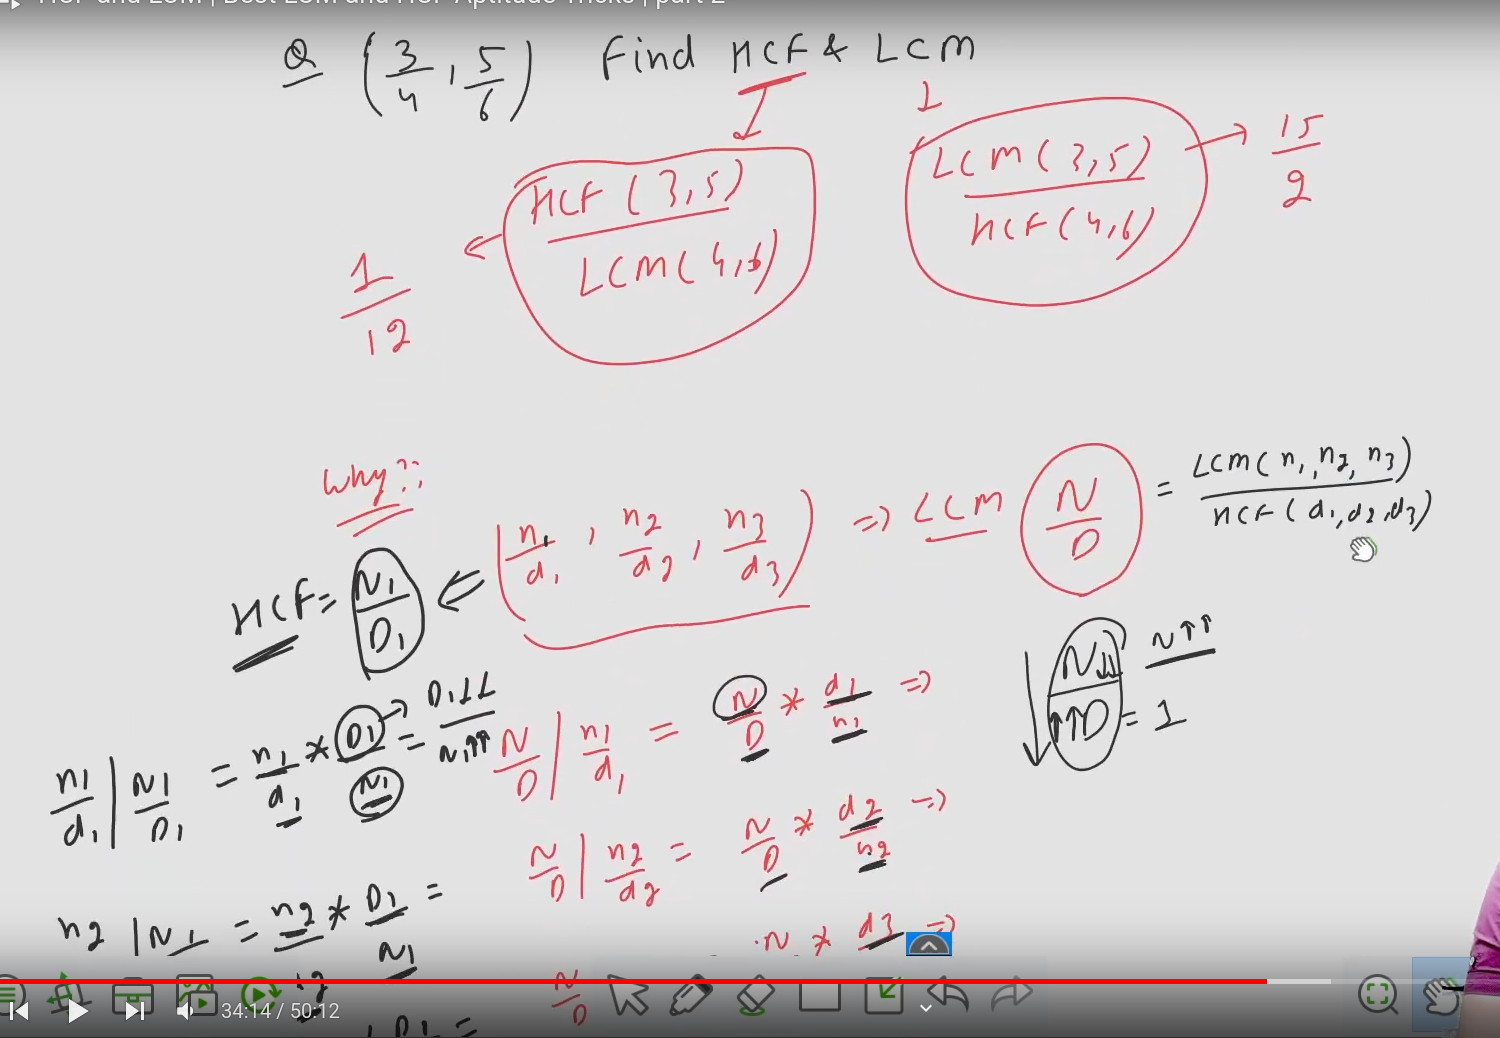 HCF and LCM | Best LCM and HCF Aptitude Tricks | part 2
Q (3/4, 5/6) Find HCF & LCM
HCF (3,5) / LCM (4,6)
1/12
LCM (3,5) / HCF (4,6) → 15/2
Why??
(n1/d1, n2/d2, n3/d3) => LCM N/D = LCM(n1, n2, n3) / HCF(d1, d2, d3)
HCF = N1/D1
N↓↓ / ↑↑D = 1
N↑↑
n1/d1 | N1/D1 = n1/d1 * D1/N1 = D1↓↓ / N1↑↑
N/D | n1/d1 = N/D * d1/n1 =>
N/D | n2/d2 = N/D * d2/n2 =>
n2 | N1 = n2 * D1/N1 =
N * d3 =>
N/D
D1 =
34:14 / 50:12